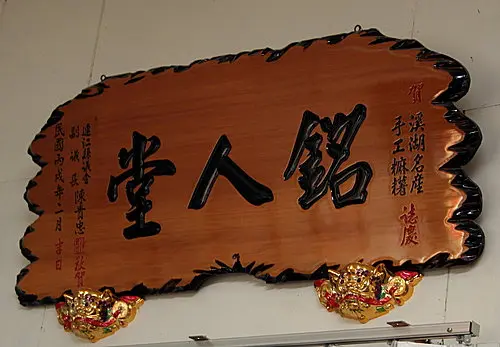 賀
溪湖名產
手工麻糬
誌慶
銘人堂
連江縣議會
副議長 陳貴忠 敬賀
民國丙戌年二月吉日